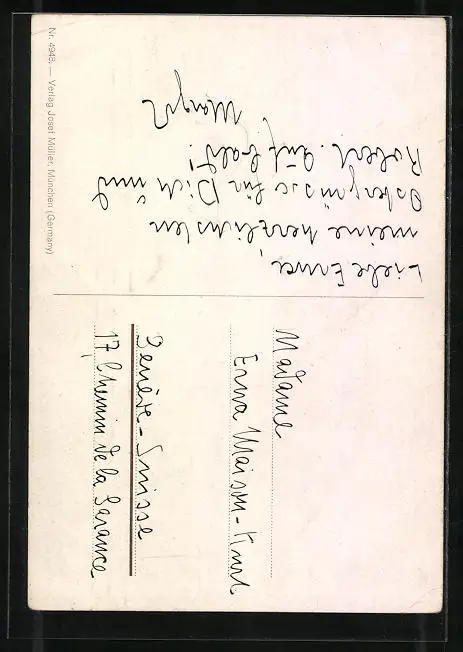 Nr. 4948. — Verlag Josef Müller, München (Germany)
Liebe Erna,
meine herzlichsten
Ostergrüsse für Dich und
Robert. Auf bald!
Madame
Erna Maison-Kurt
Genève-Suisse
17, Chemin de la Garance